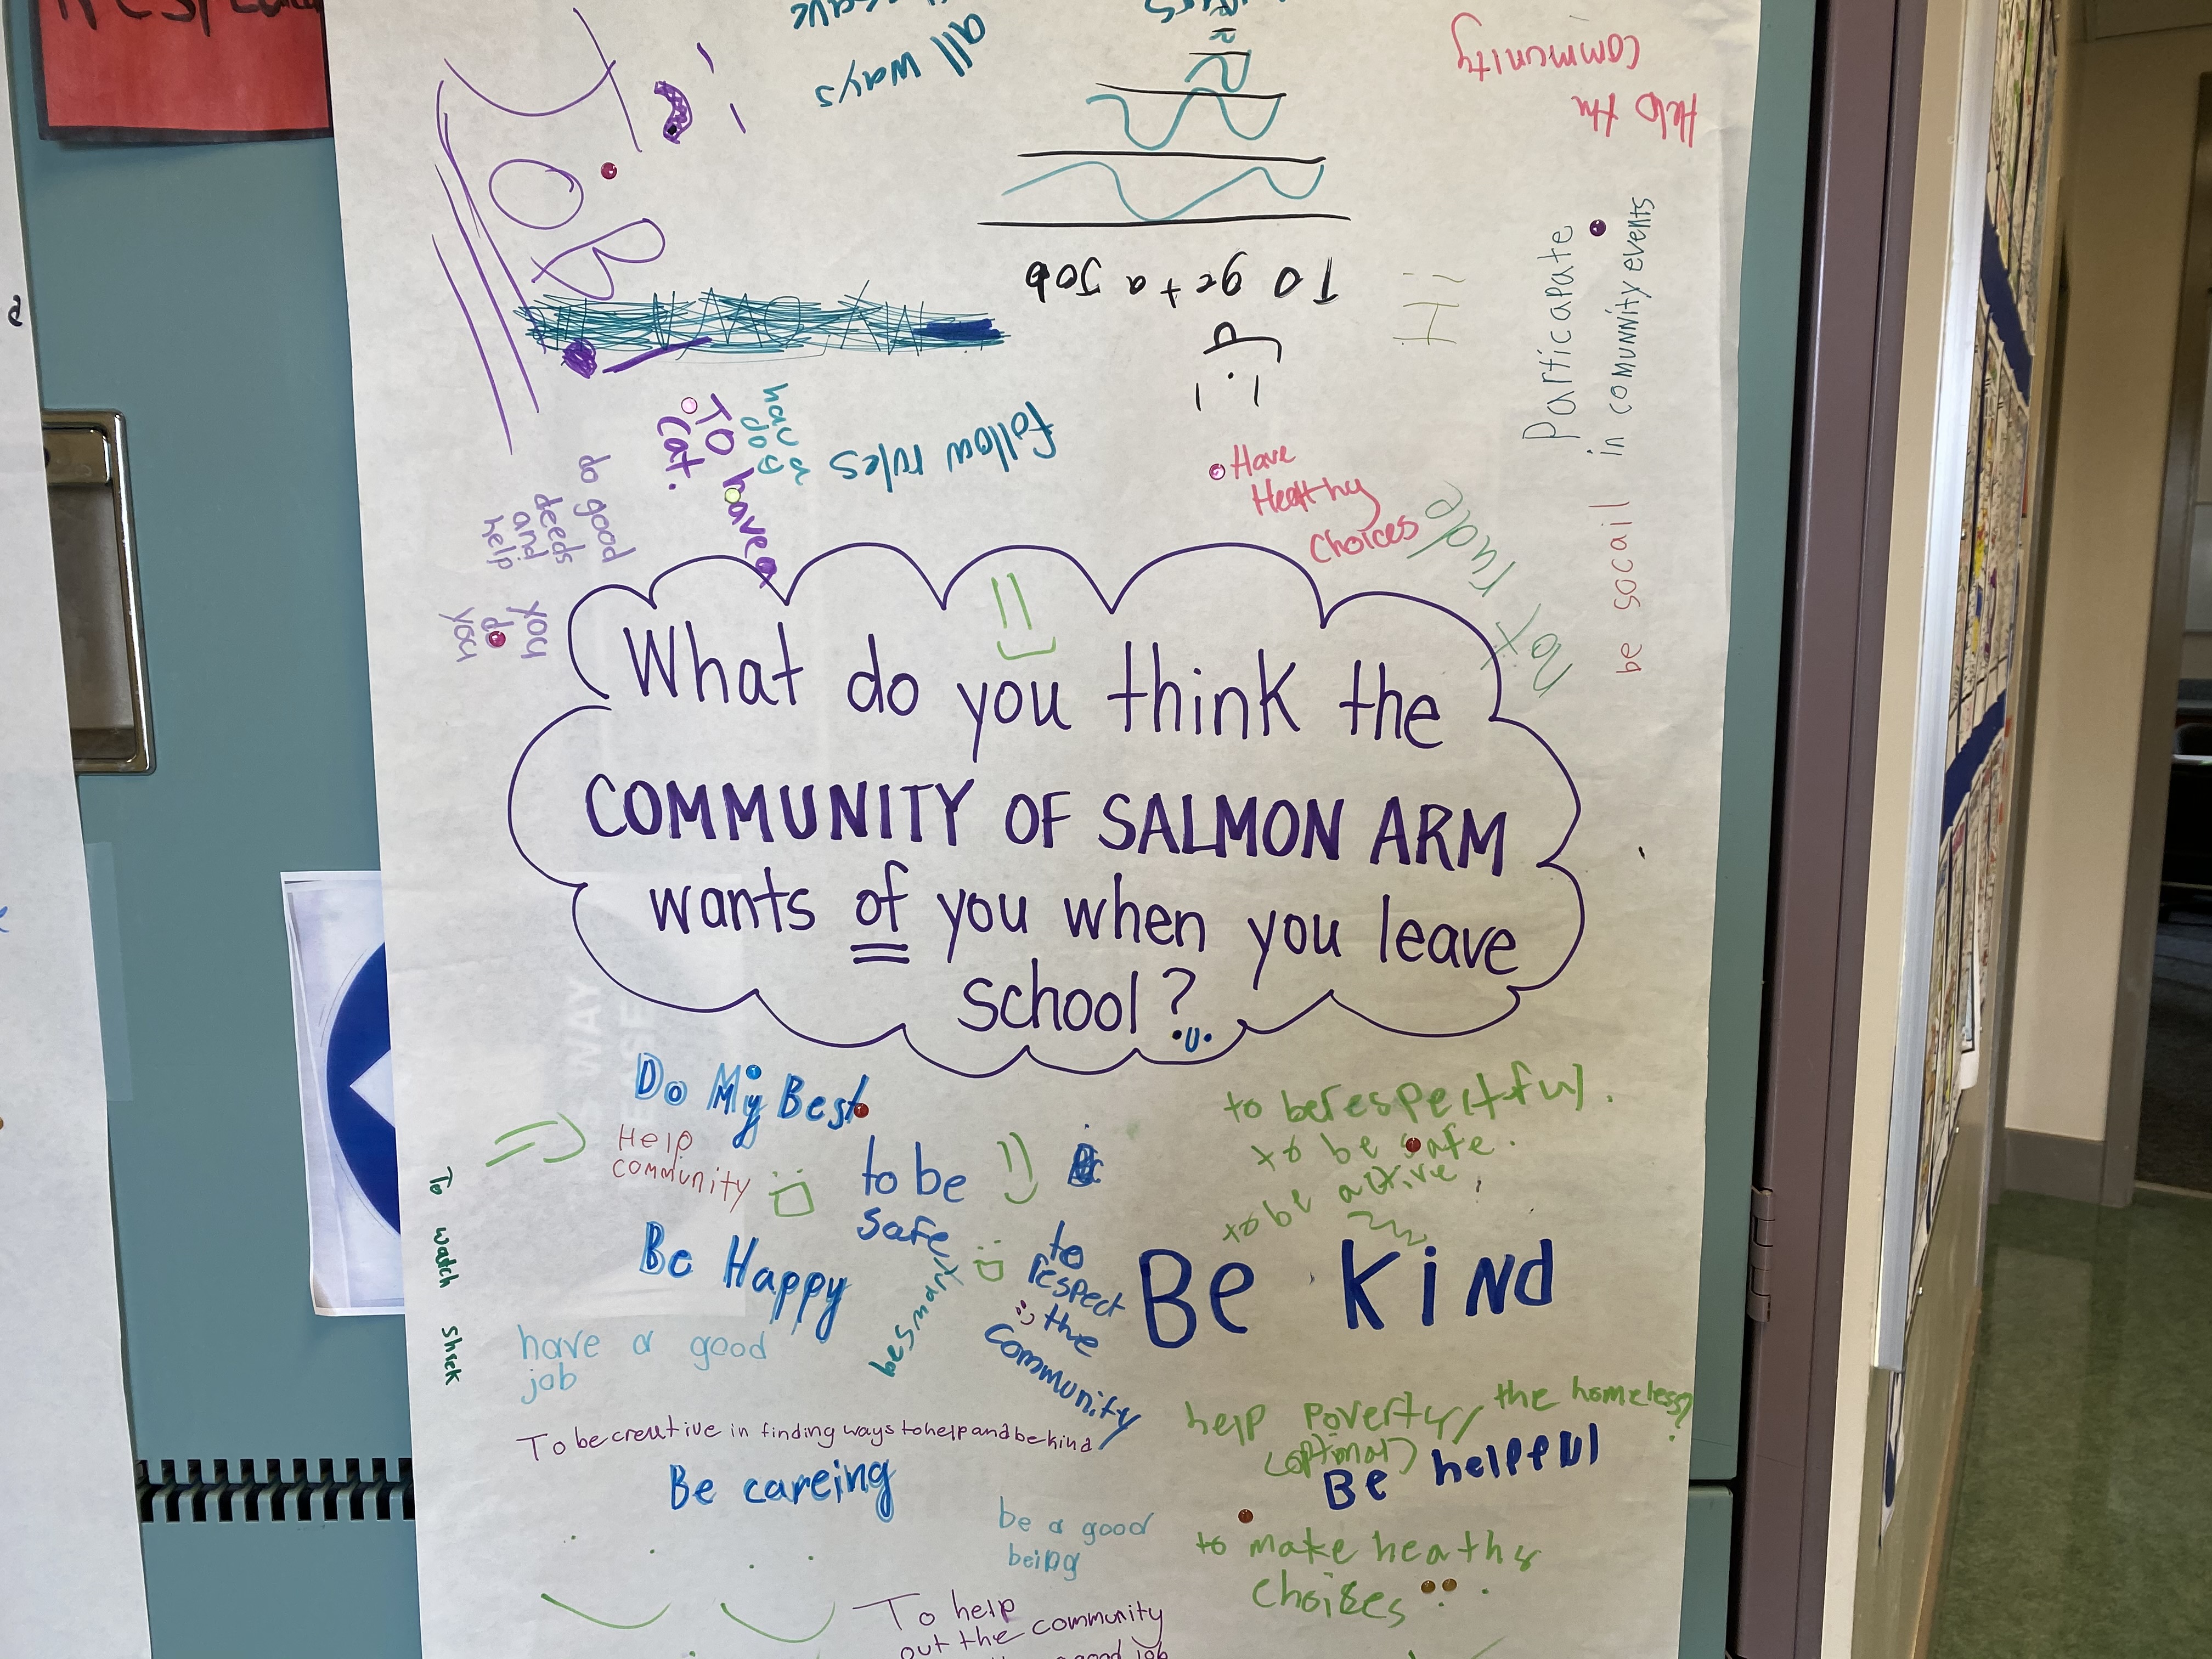 all ways
community
Help the
JOB
To get a Job
Hi
Particapate
in community events
be socail
follow rules
hav a
dog
To have a
cat.
do good
deeds
and
help
you
do
you
Have
Healthy
Choices
not rude
What do you think the
COMMUNITY OF SALMON ARM
wants of you when you leave
school?
Do My Best
Help
community
to be
safe
to berespectful.
to be safe.
to be active
Be Happy
be smart
to
respect
the
community
Be kind
To watch shrek
have a good
job
To be creative in finding ways to help and be kind
help poverty/ the homeless?
(optinal)
Be helpful
Be careing
be a good
being
to make heathy
choices
To help
out the community
good job